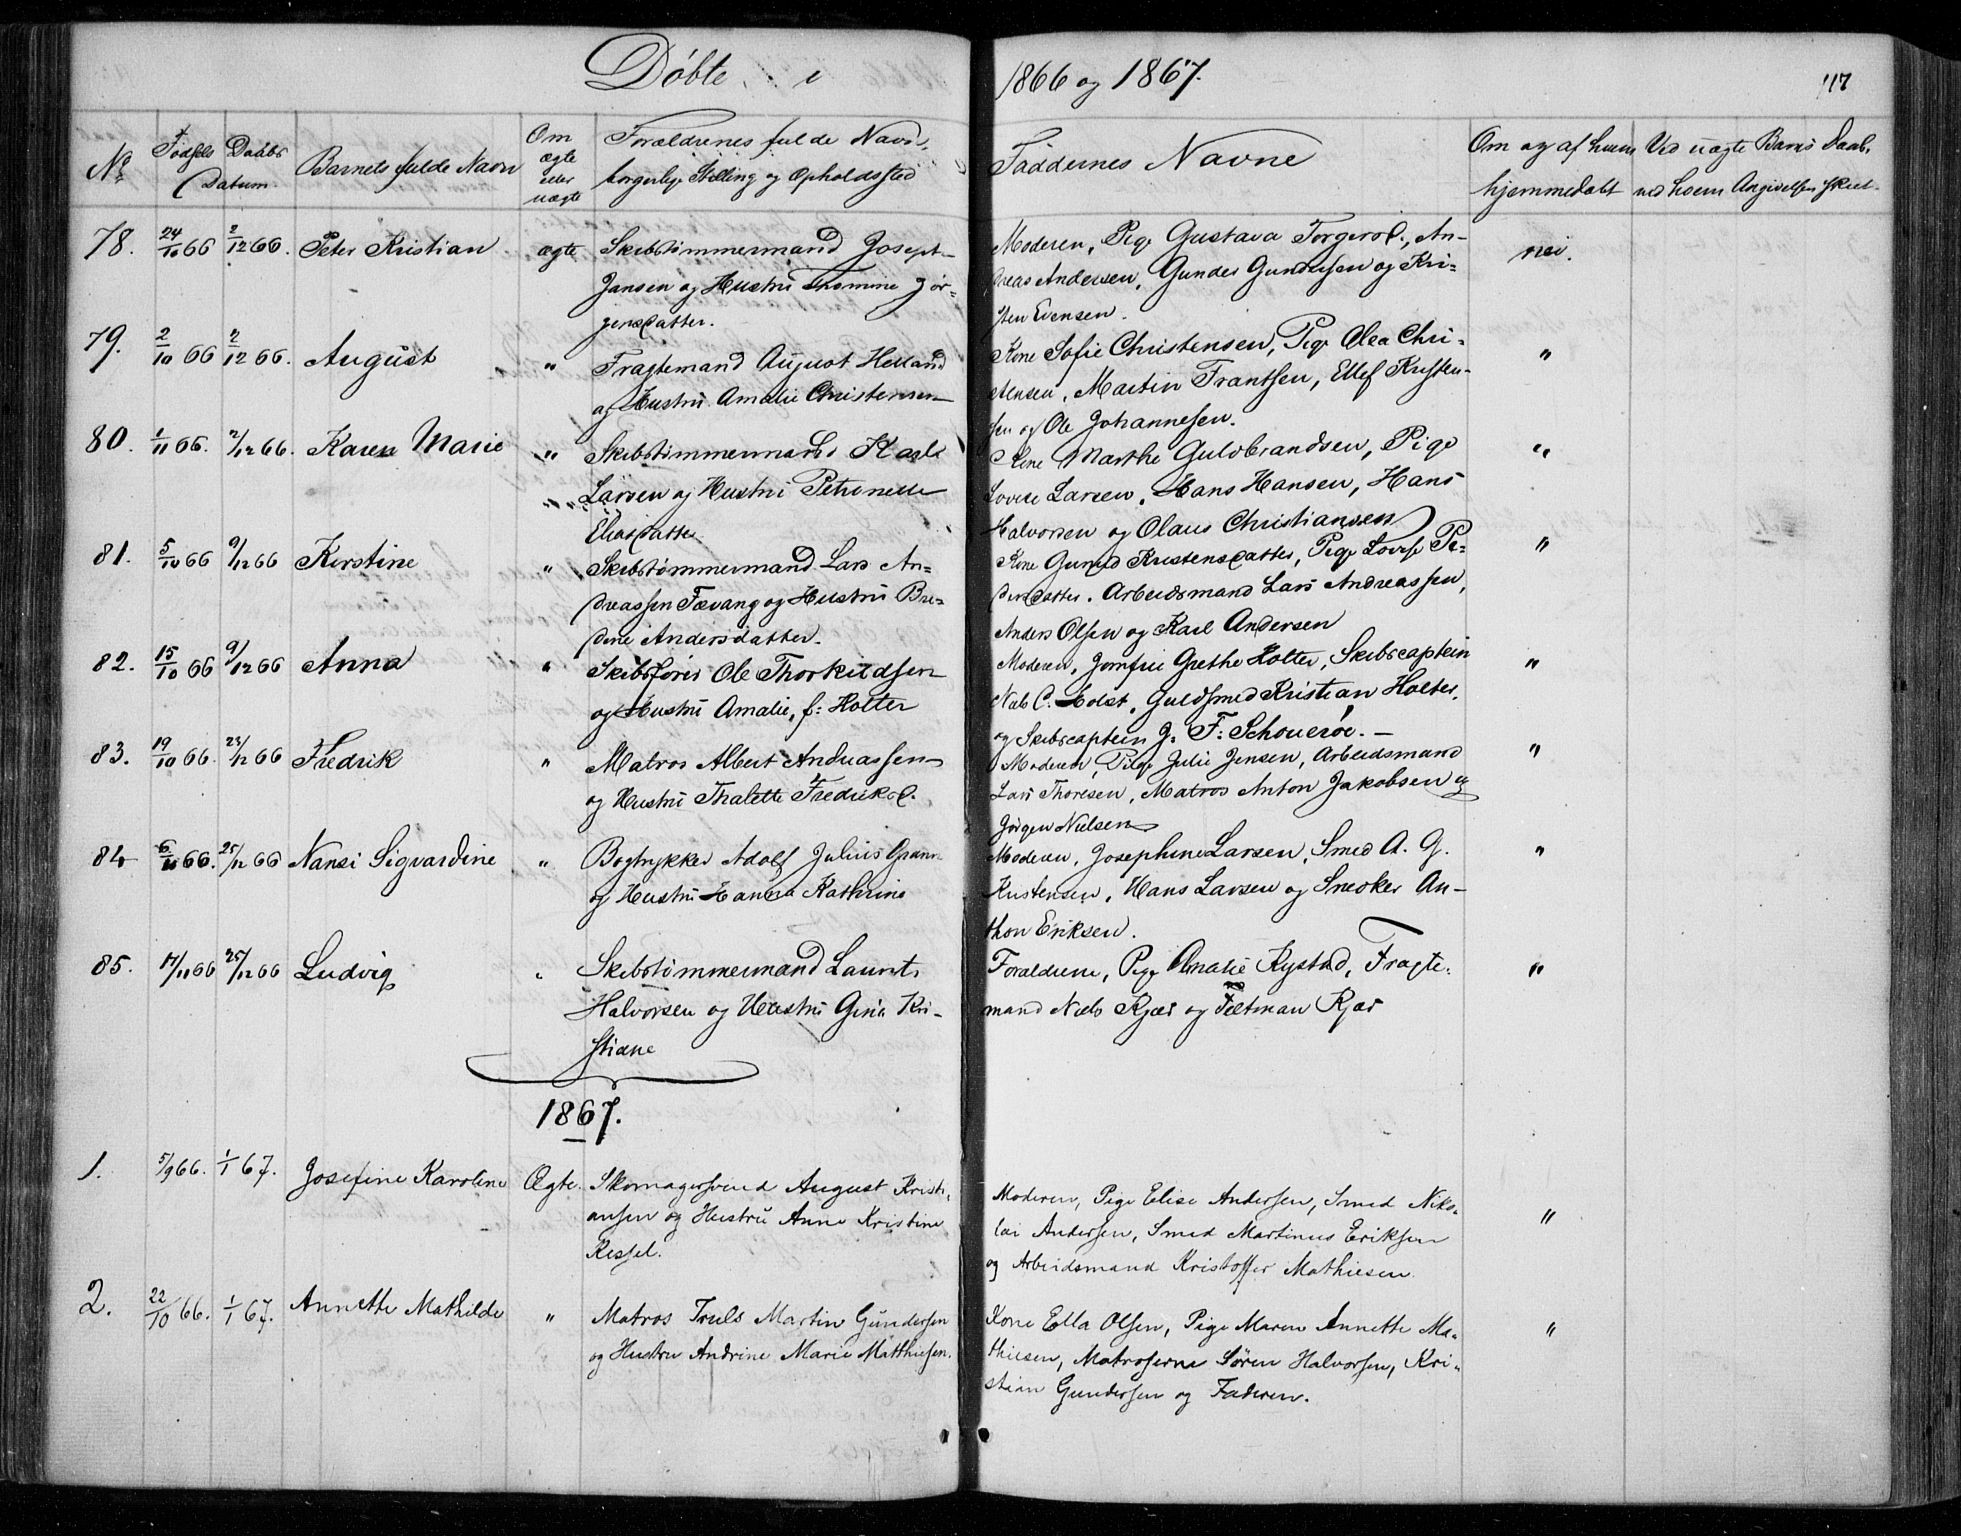 Døbte i 1866 og 1867.
117
No
Fødsels Daabs
Datum.
Barnets fulde Navn
Om
ægte
eller
uægte
Forældrenes fulde Navn,
borgerlige Stilling og Opholdssted
Faddernes Navne
Om og af hvem
hjemmedøbt
Ved uægte Barns Daab,
ved hvem Angivelsen skeet.
78. 24/10 66 2/12 66. Peter Kristian ægte
Skibstømmermand Josept
Jansen og Hustru Thomine Jör-
gensdatter.
Moderen, Pige Gustava Torgersd., An-
dreas Andersen, Gunder Gundersen og Kri-
sten Evensen.
nei.
79. 2/10 66 2/12 66. August "
Fragtemand August Helland
og Hustru Amalie Christensen
Kone Sofie Christensen, Pige Olea Chri-
stensen, Martin Frantsen, Ellef Kristen-
sen og Ole Johannesen.
"
80. 1/11 66. 2/12 66. Karen Marie "
Skibstømmermand Karl
Larsen og Hustru Petronelle
Eliasdatter.
Kone Marthe Guldbrandsen, Pige
Lovise Larsen, Hans Hansen, Hans
Halvorsen og Olaus Christiansen
"
81. 5/10 66 9/12 66 Kirstine "
Skibstømmermand Lars An-
dreassen Fævang og Hustru Bre-
dine Andersdatter.
Kone Gunild Kristensdatter, Pige Lovise Pe-
dersdatter. Arbeidsmand Lars Andreassen,
Anders Olsen og Karl Andersen
"
82. 15/10 66 9/12 66 Anna "
Skibsfører Ole Thorkildsen
og Hustru Amalie, f: Holter
Moderen, Jomfru Grethe Holter, Skibscaptein
Niels C. Holst, Guldsmed Kristian Holter,
og Skibscaptein J. F. Schouerøe. —
"
83. 19/10 66. 23/12 66 Fredrik "
Matros Albert Andreassen
og Hustru Thalette Fredriksd.
Moderen, Pige Julie Jensen, Arbeidsmand
Lars Thoresen, Matros Anton Jakobsen og
Jörgen Nielsen
"
84 6/11 66. 25/12 66 Nansi Sigvardine "
Bogtrykker Adolf Julius Grann
og Hustru Hanna Kathrine
Moderen, Josephine Larsen, Smed A. G.
Kristensen, Hans Larsen og Snedker An-
thon Eriksen.
"
85. 17/11 66 25/12 66 Ludvig "
Skibstømmermand Laurits
Halvorsen og Hustru Gina Kri-
stiane
Forældrene, Pige Amalie Rystad, Fragte-
mand Niels Kjær og Feltman Kjær
"
1867.
1. 5/9 66. 1/1 67. Josefine Karoline Ægte.
Skomagersvend August Kristi-
ansen og Hustru Anne Kristine
Ressel.
Moderen, Pige Elise Andersen, Smed Niko-
lai Andersen, Smed Martinus Eriksen
og Arbeidsmand Kristoffer Mathiesen
"
2. 22/10 66. 1/1 67. Annette Mathilde "
Matros Truls Martin Gundersen
og Hustru Andrine Marie Matthiesen.
Kone Ella Olsen, Pige Maren Annette Ma-
thiesen, Matroserne Sören Halvorsen, Kri-
stian Gundersen og Faderen.
"